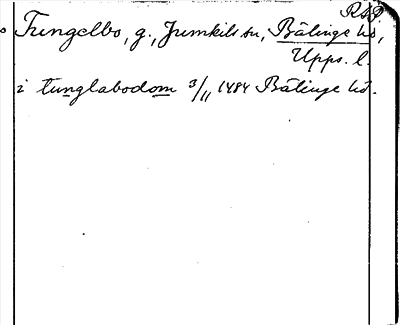 RSP.
Tungelbo, g., Jumkils sn, Bälinge hd,
Upps. l.
i tunglabodom 3/11 1484 Bälinge hd.